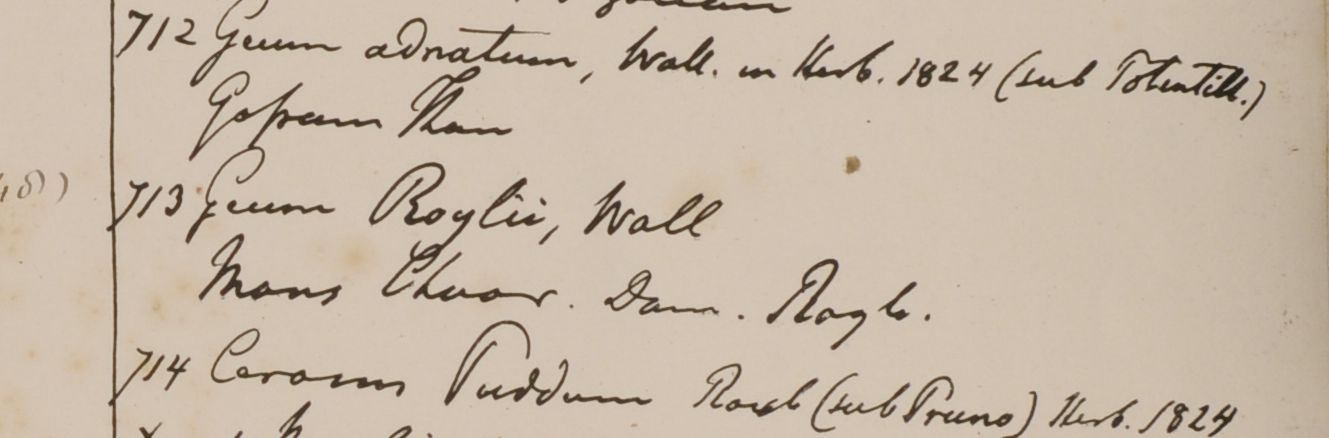 712 Geum adnatum, Wall. in Herb. 1824 (sub Potentill.)
Gosain Than
713 Geum Roylii, Wall
Mons Chuor. Dom. Royle.
714 Cerasus Puddum Roxb (sub Pruno) Herb. 1824